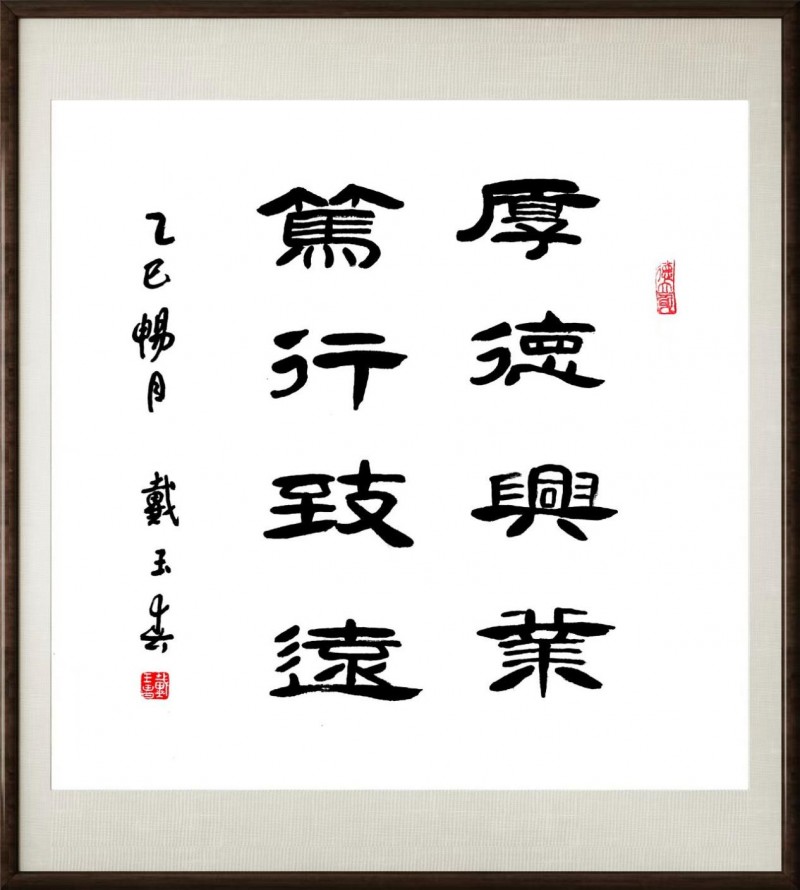 厚德興業
篤行致遠
乙巳暢月 戴玉春